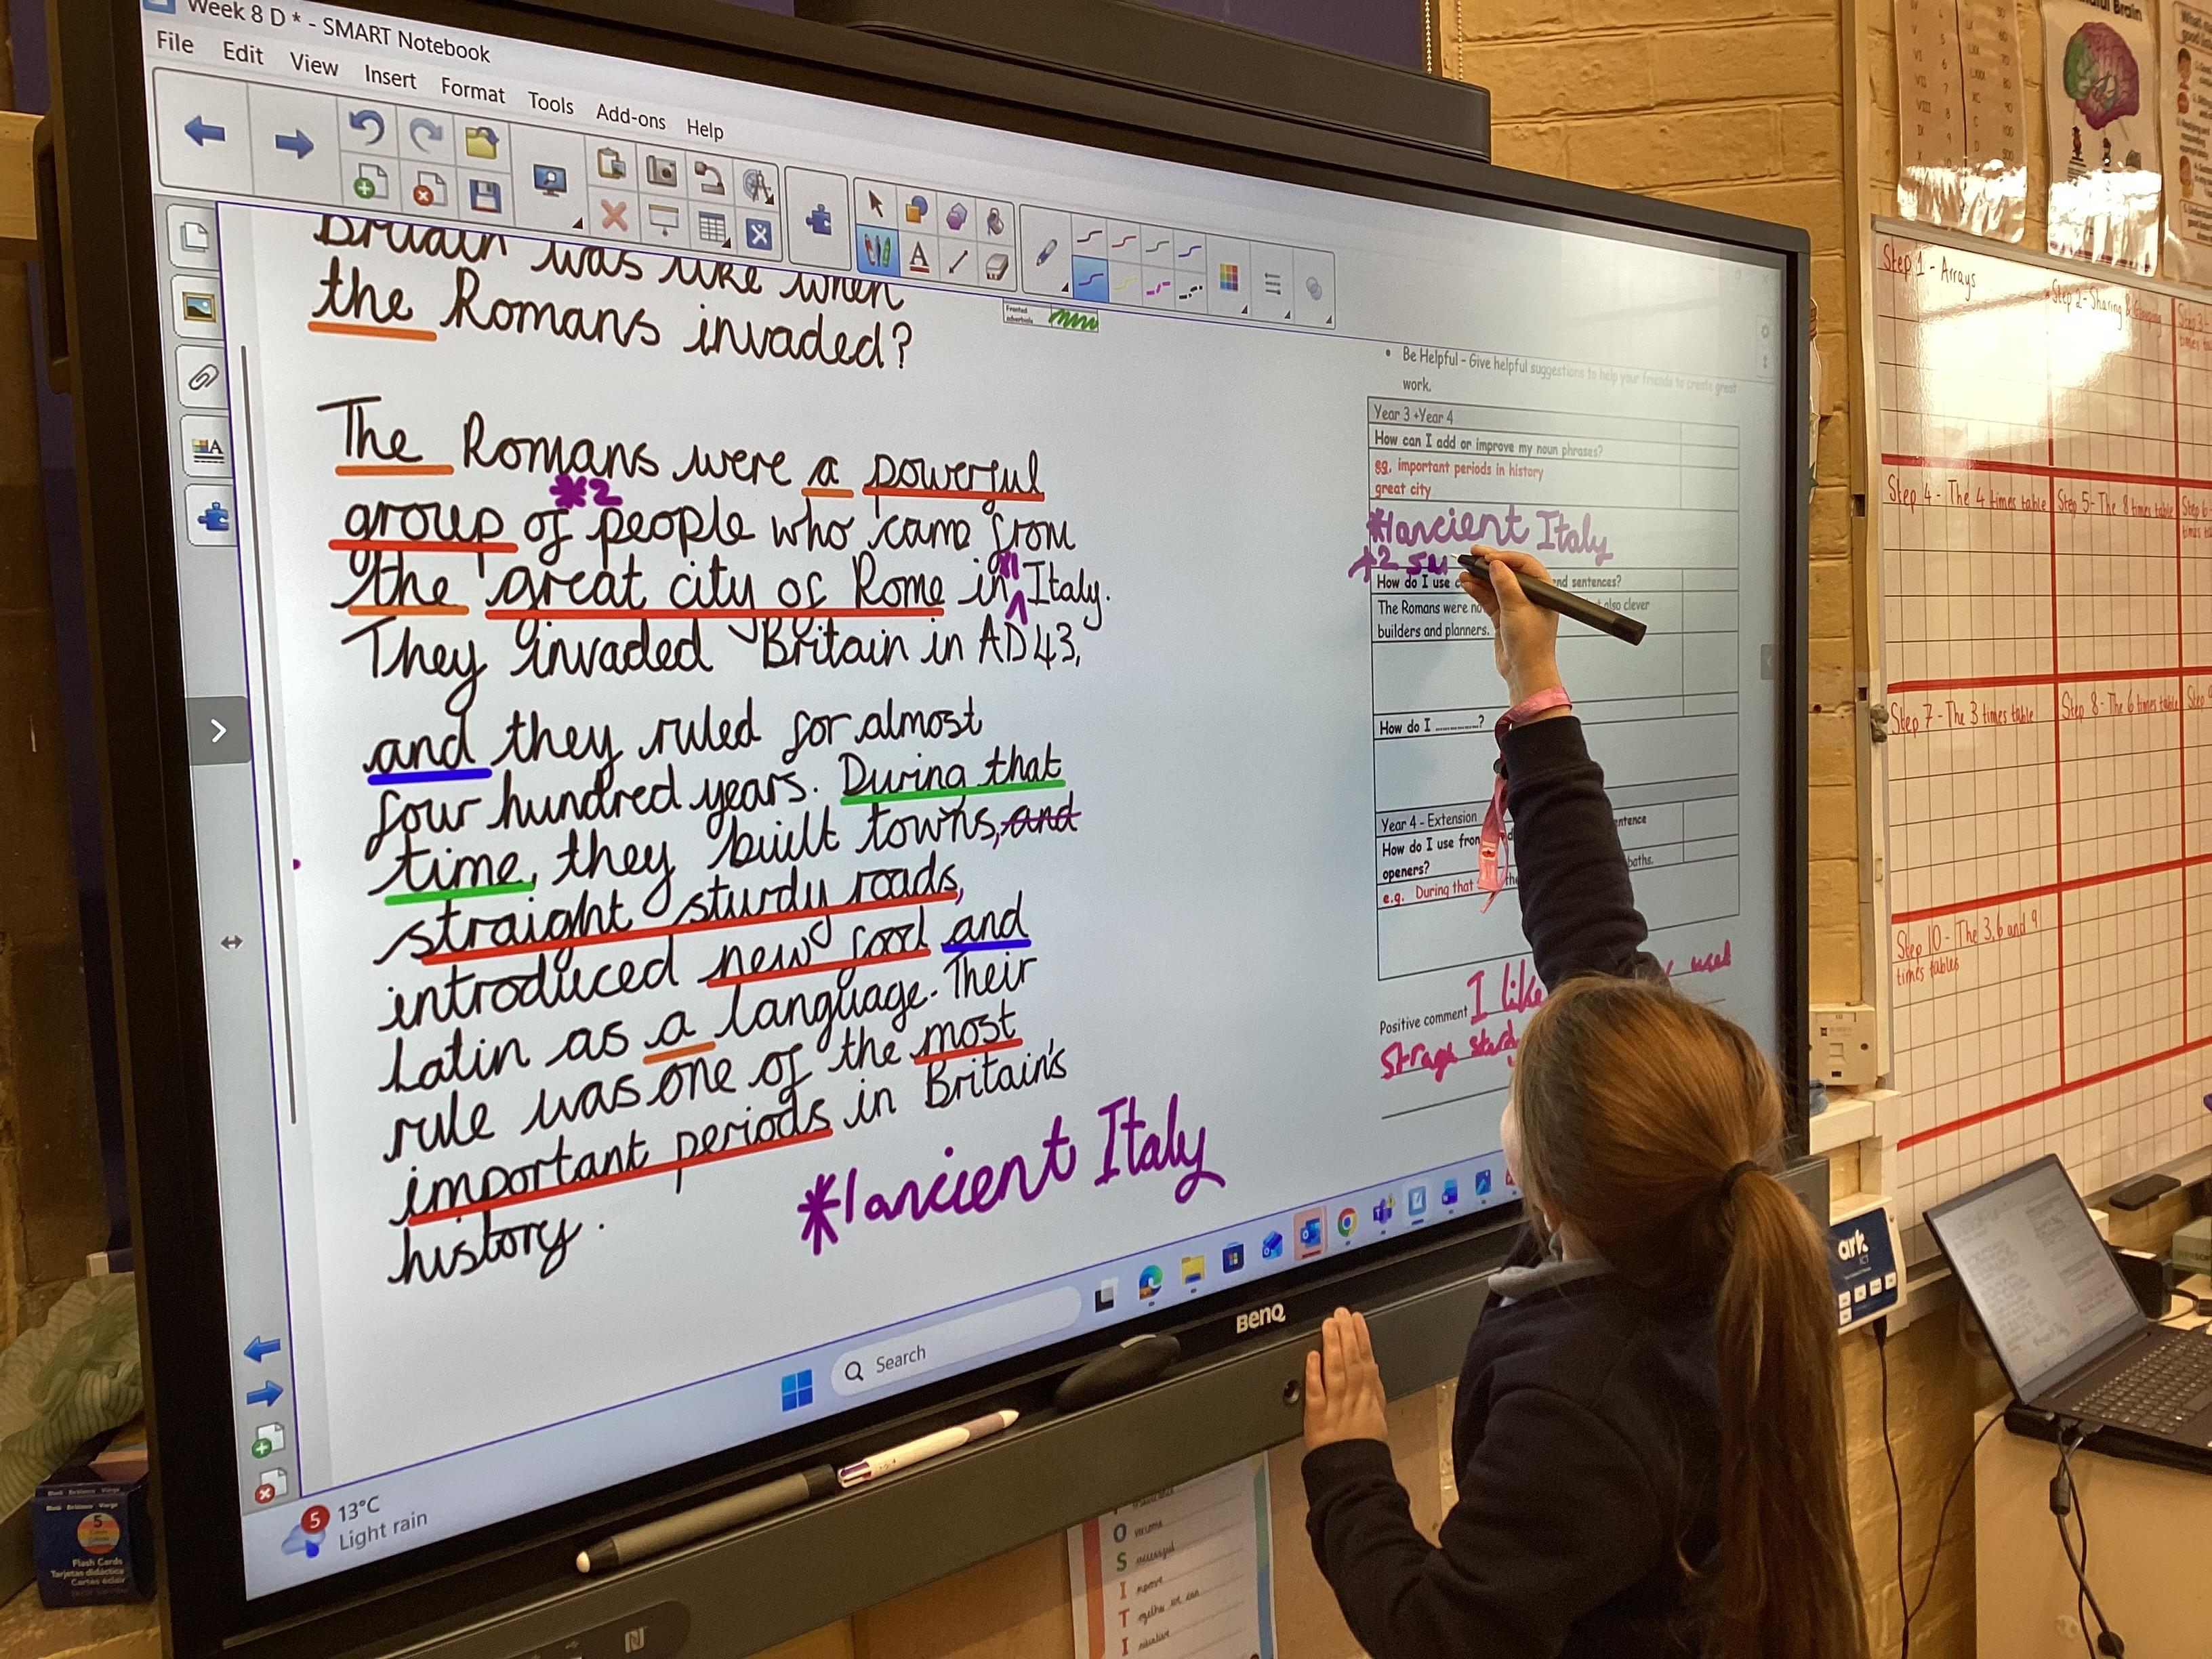 Week 8 D * - SMART Notebook
File Edit View Insert Format Tools Add-ons Help
Britain was like when
the Romans invaded?
The Romans were a powerful
*2
group of people who came from
*1
the great city of Rome in Italy.
They invaded Britain in AD43,
and they ruled for almost
four hundred years. During that
time, they built towns, and
straight sturdy roads,
introduced new food and
Latin as a language. Their
rule was one of the most
important periods in Britain's
history.
*1 ancient Italy
Fronted
adverbials
• Be Helpful - Give helpful suggestions to help your friends to create great
work.
Year 3 +Year 4
How can I add or improve my noun phrases?
eg. important periods in history
great city
*1 ancient Italy
*2 su
How do I use c nd sentences?
The Romans were no also clever
builders and planners.
How do I ............?
Year 4 - Extension
How do I use fron entence
openers?
e.g. During that the baths.
Positive comment I like used
Search
BenQ
5
13°C
Light rain
Step 1 - Arrays
Step 2 - Sharing & Grouping
Step 4 - The 4 times table
Step 5 - The 8 times table
Step 7 - The 3 times table
Step 8 - The 6 times table
Step 10 - The 3, 6 and 9
times tables
ark
ICT
5
Flash Cards
Tarjetas didáctica
Cartes éclair
O
S
I
T
I